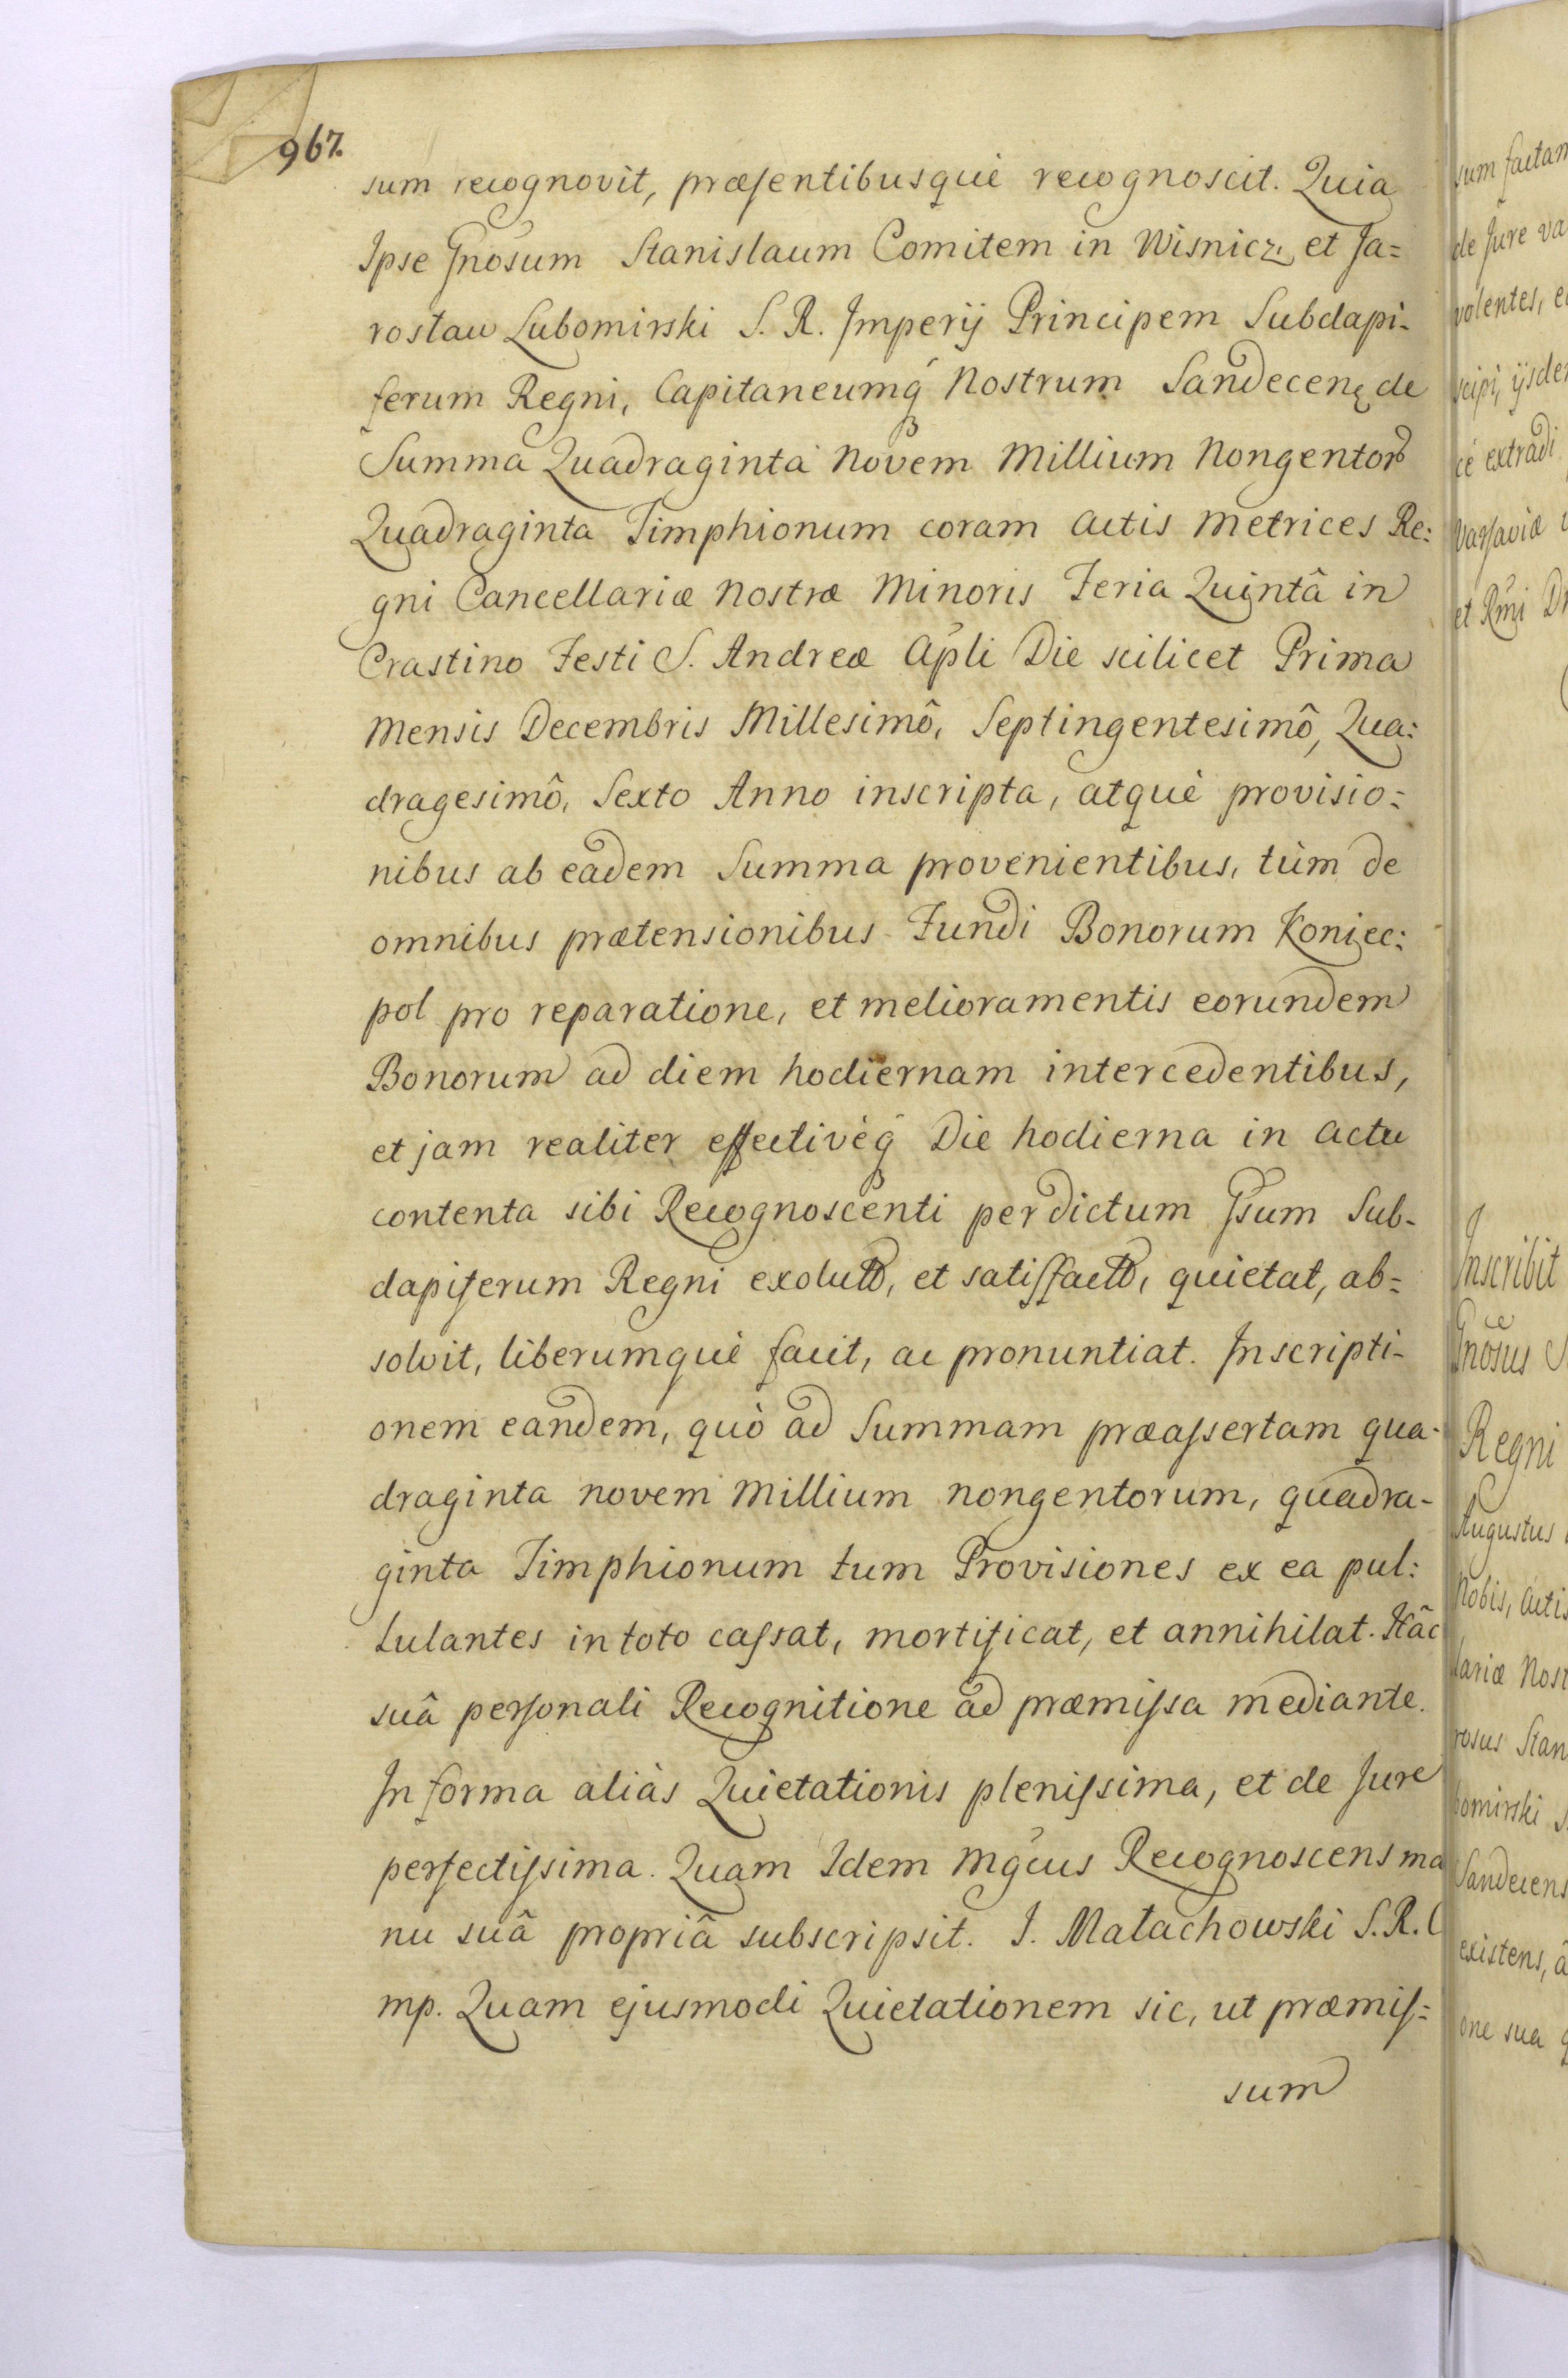 967.
sum recognovit, præsentibusquè recognoscit. Quia
Ipse Gnosum Stanislaum Comitem in Wisnicz, et Ja=
rosław Lubomirski S. R. Imperij Principem Subdapi-
ferum Regni, Capitaneumq́ Nostrum Sandecenę de
Summa Quadraginta Novem Millium Nongentorꝝ
Quadraginta Timphionum coram Actis Metrices Re:
gni Cancellariæ Nostræ Minoris Feria Quintâ in
Crastino Festi S. Andreæ Apli Die scilicet Prima
Mensis Decembris Millesimô, Septingentesimô, Qua:
dragesimô, Sexto Anno inscripta, atquè provisio=
nibus ab eadem Summa provenientibus, tùm de
omnibus prætensionibus Fundi Bonorum Koniec:
pol pro reparatione, et melioramentis eorundem
Bonorum ad diem hodiernam intercedentibus,
et jam realiter effectivèq́ Die hodierna in Actu
contenta sibi Recognoscenti per dictum Gsum Sub-
dapiferum Regni exolutꝝ, et satisfactꝝ, quietat, ab=
solvit, liberumquè facit, ac pronuntiat. Inscripti-
onem eandem, quò ad Summam præassertam qua-
draginta novem Millium nongentorum, quadra-
ginta Timphionum tum Provisiones ex ea pul:
lulantes in toto cassat, mortificat, et annihilat. Hâc
suâ personali Recognitione ad præmissa mediante.
In forma aliàs Quietationis plenissima, et de Jure
perfectissima. Quam Idem Mgcus Recognoscens ma
nu suâ propriâ subscripsit. J. Małachowski S. R. C
mp. Quam ejusmodi Quietationem sic, ut præmis=
sum
sum factam
de Jure va
volentes, e
scipi, ijsde
cè extradi
Varsaviæ
et Rmi D
Inscribit
Gnosus S
Regni
Augustus
Nobis, Actis
lariæ Nost
rosus Stan
bomirski S
Sandecens
existens, â
one sua q